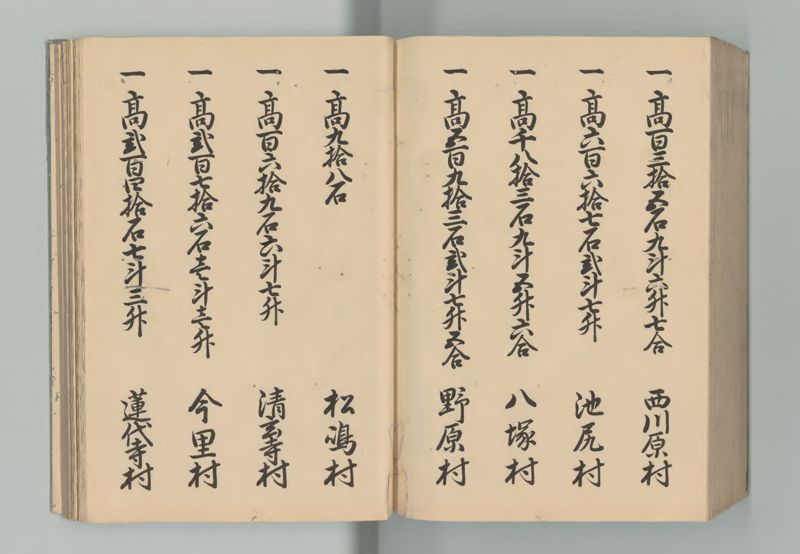 一 高百三拾五石九斗六升七合 西川原村
一 高六百六拾七石弐斗七升 池尻村
一 高千八拾三石九斗五升六合 八塚村
一 高五百九拾三石弐斗七升五合 野原村
一 高九拾八石 松嶋村
一 高百六拾九石六斗七升 清高寺村
一 高弐百七拾六石壱斗壱升 今里村
一 高弐百四拾石七斗三升 蓮代寺村